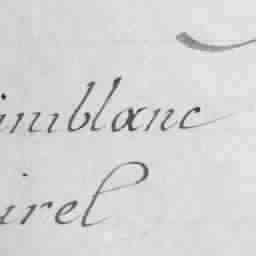 imblanc
irel